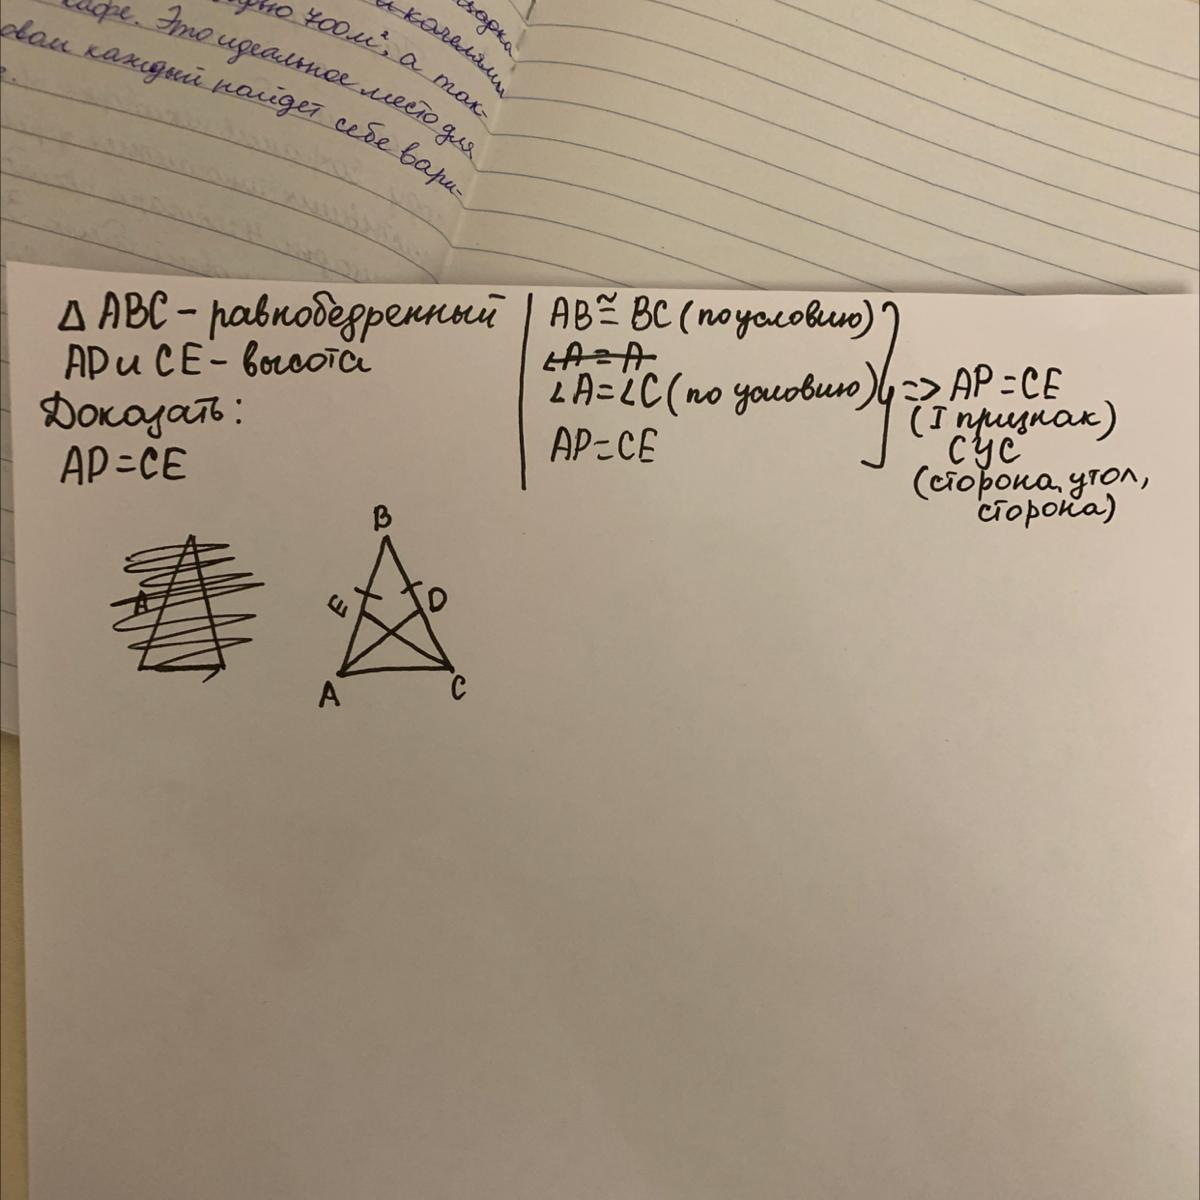 700м², а так-
кафе. Это идеальное место для
каждый найдет себе вари-
и качелями
Δ ABC – равнобедренный
AD и CE – высота
Доказать:
AD = CE
AB ≅ BC (по условию)
∠A = A
∠A = ∠C (по условию)
AP = CE
=> AP = CE
(I признак)
СУС
(сторона, угол,
сторона)
A
B
E
D
A
C